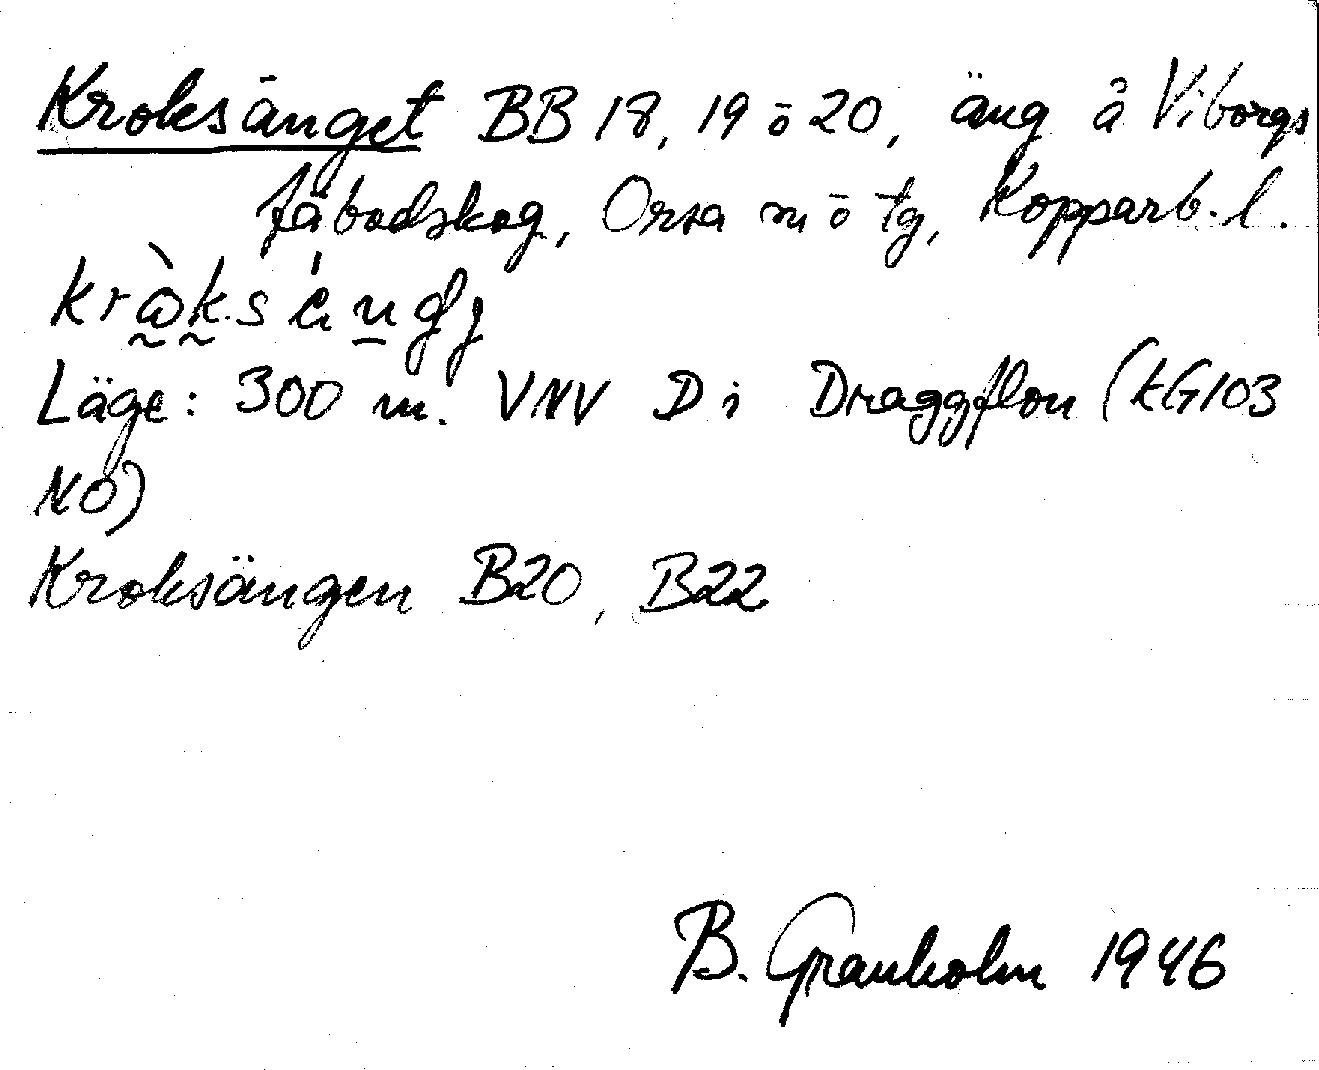 Kroksänget BB 18, 19 o 20, äng å Viborgs
fäbodskog, Orsa m o tg, Kopparb. l.
Läge: 300 m. VNV D i Draggflon (kG103
NO)
Kroksängen B20, B22
B. Granholm 1946